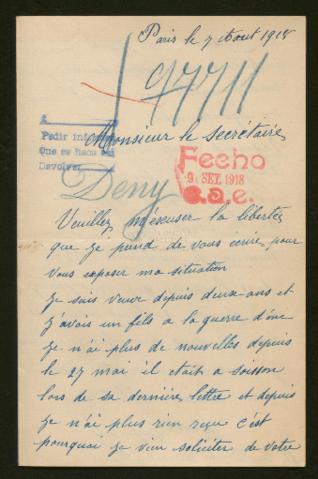 Paris le 7 Aout 1918
97711
Monsieur le Secrétaire
A
Pedir
Que se haga
Devolver
Fecho
9 SET. 1918
Deny
Veuillez m'excuser la liberté
que je prend de vous écrire pour
vous exposer ma situation
je suis veuve depuis deux ans et
j'avais un fils a la guerre d'one
je n'ai plus de nouvelles depuis
le 27 mai il était a soisson
lors de sa dernière lettre et depuis
je n'ai plus rien reçu c'est
pourquoi je vien soliciter de votre